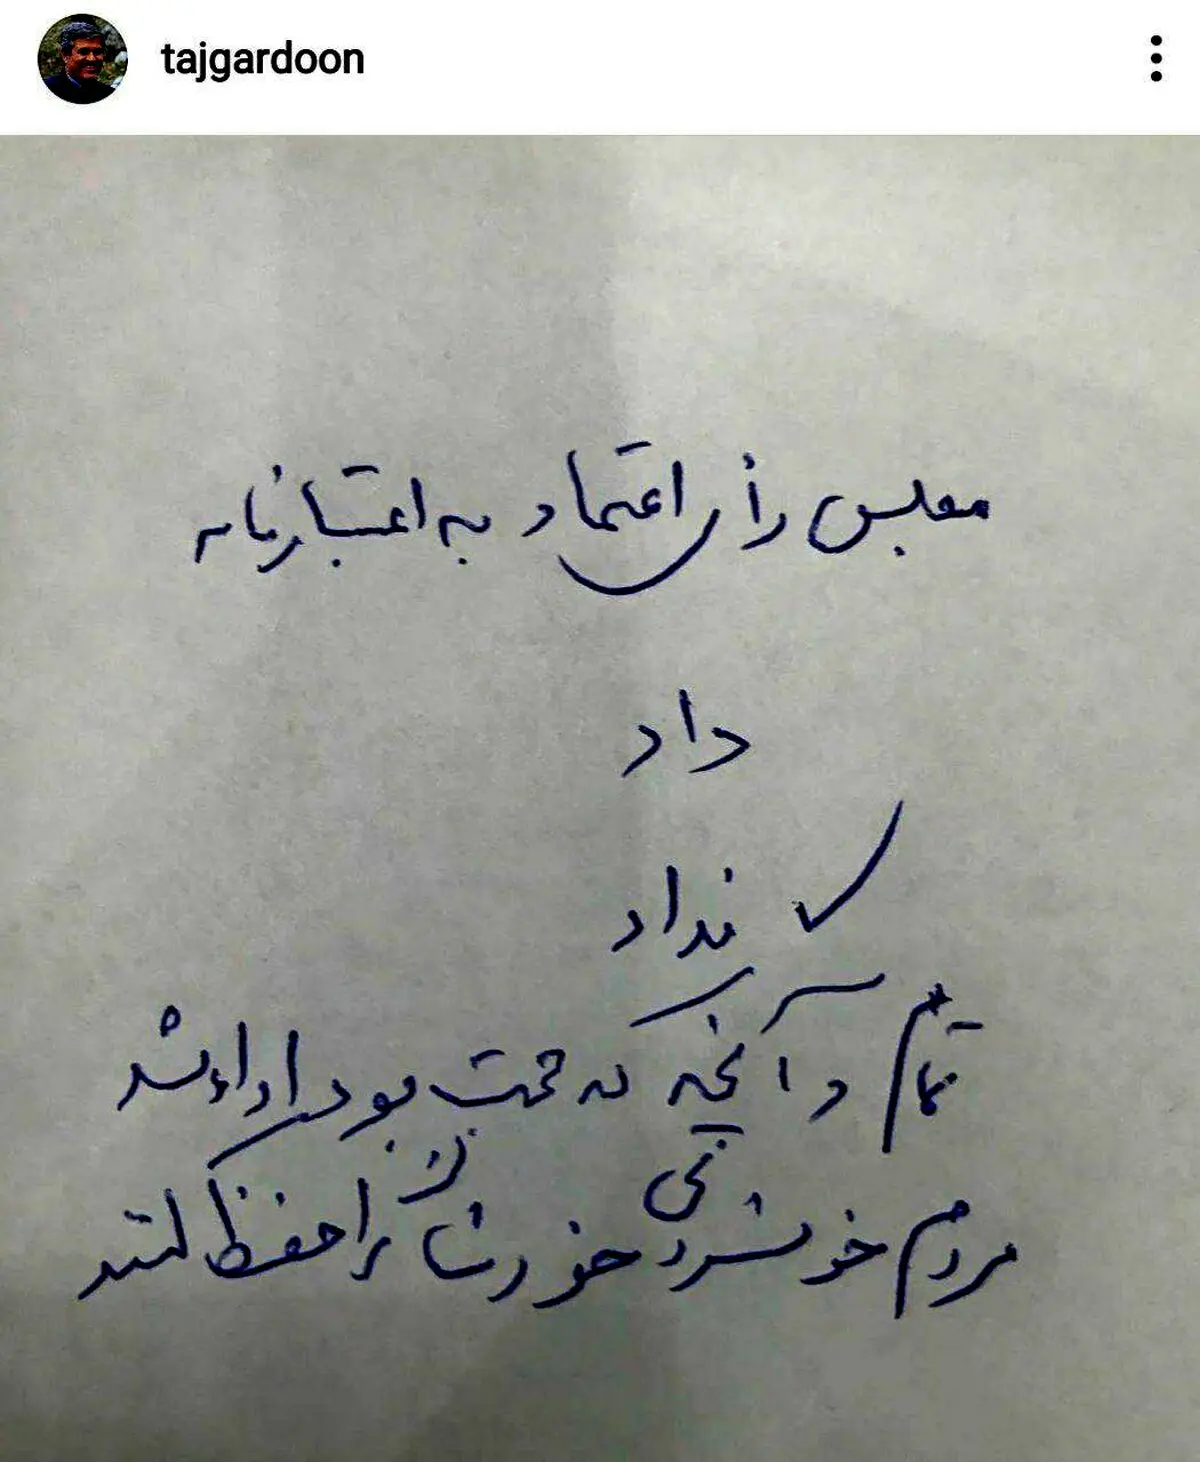 tajgardoon
مجلس رأی اعتماد به اعتبارنامه
داد
نداد
تمام و آنچه که تهمت بود را اداء شد
مردم خونسردی خودشان را حفظ کنند